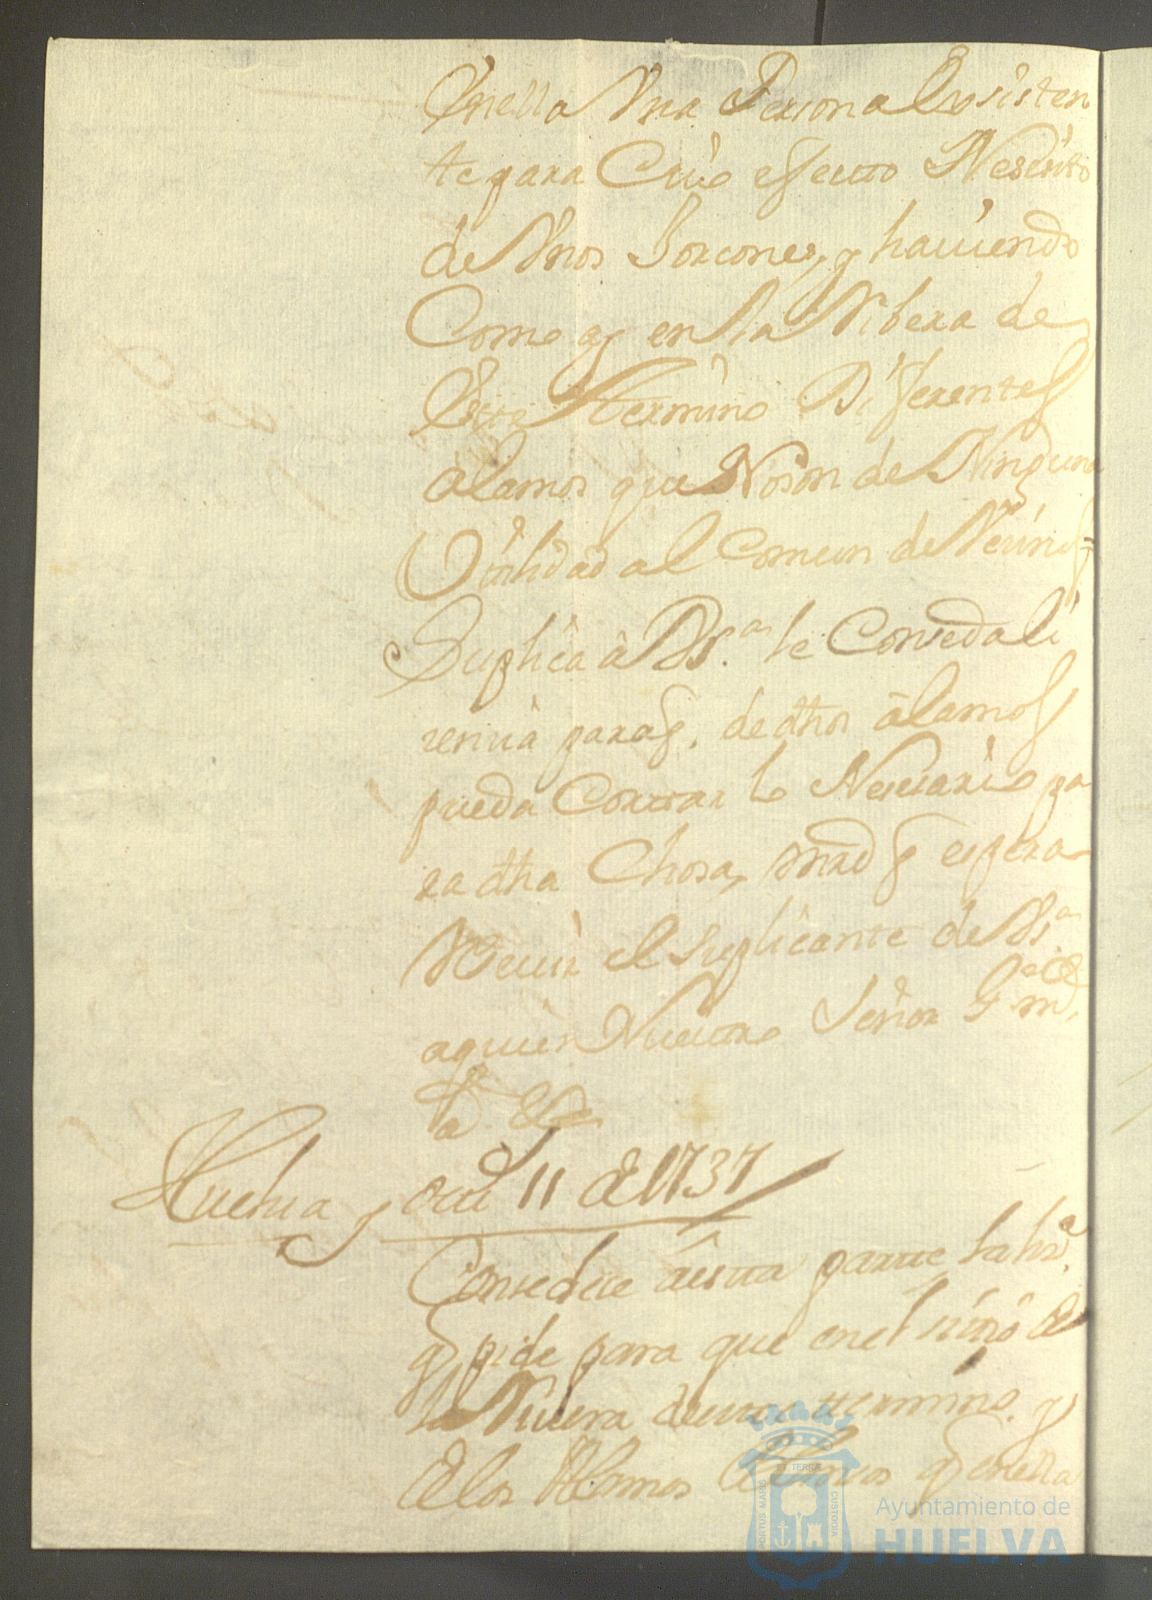 Enella Una Persona Exsisten
te para Cuio efecto Nesesito
de Unos Horcones, y haviendo
Como ay en la Ribera de
Este Termino Diferentes
alamos que No son de Ninguna
Utilidad al Comun de Vecinos=
Suplica à Vs.ª le Conseda li
sencia para q. de dhos àlamos
pueda Cortar lo Nesesario pa
ra dha Chosa, mrd q espera
Recivir el Suplicante de Vs.ª
a quien Nuestro Señor
Huelva y oct 11 de 1737
Consedese a esta parte la liz.ª
q pide para que en el sitio de
la Rivera de este termino y
de los Alamos blancos q en ella
PORTUS MARIS ET TERRAE CUSTODIA
Ayuntamiento de
HUELVA